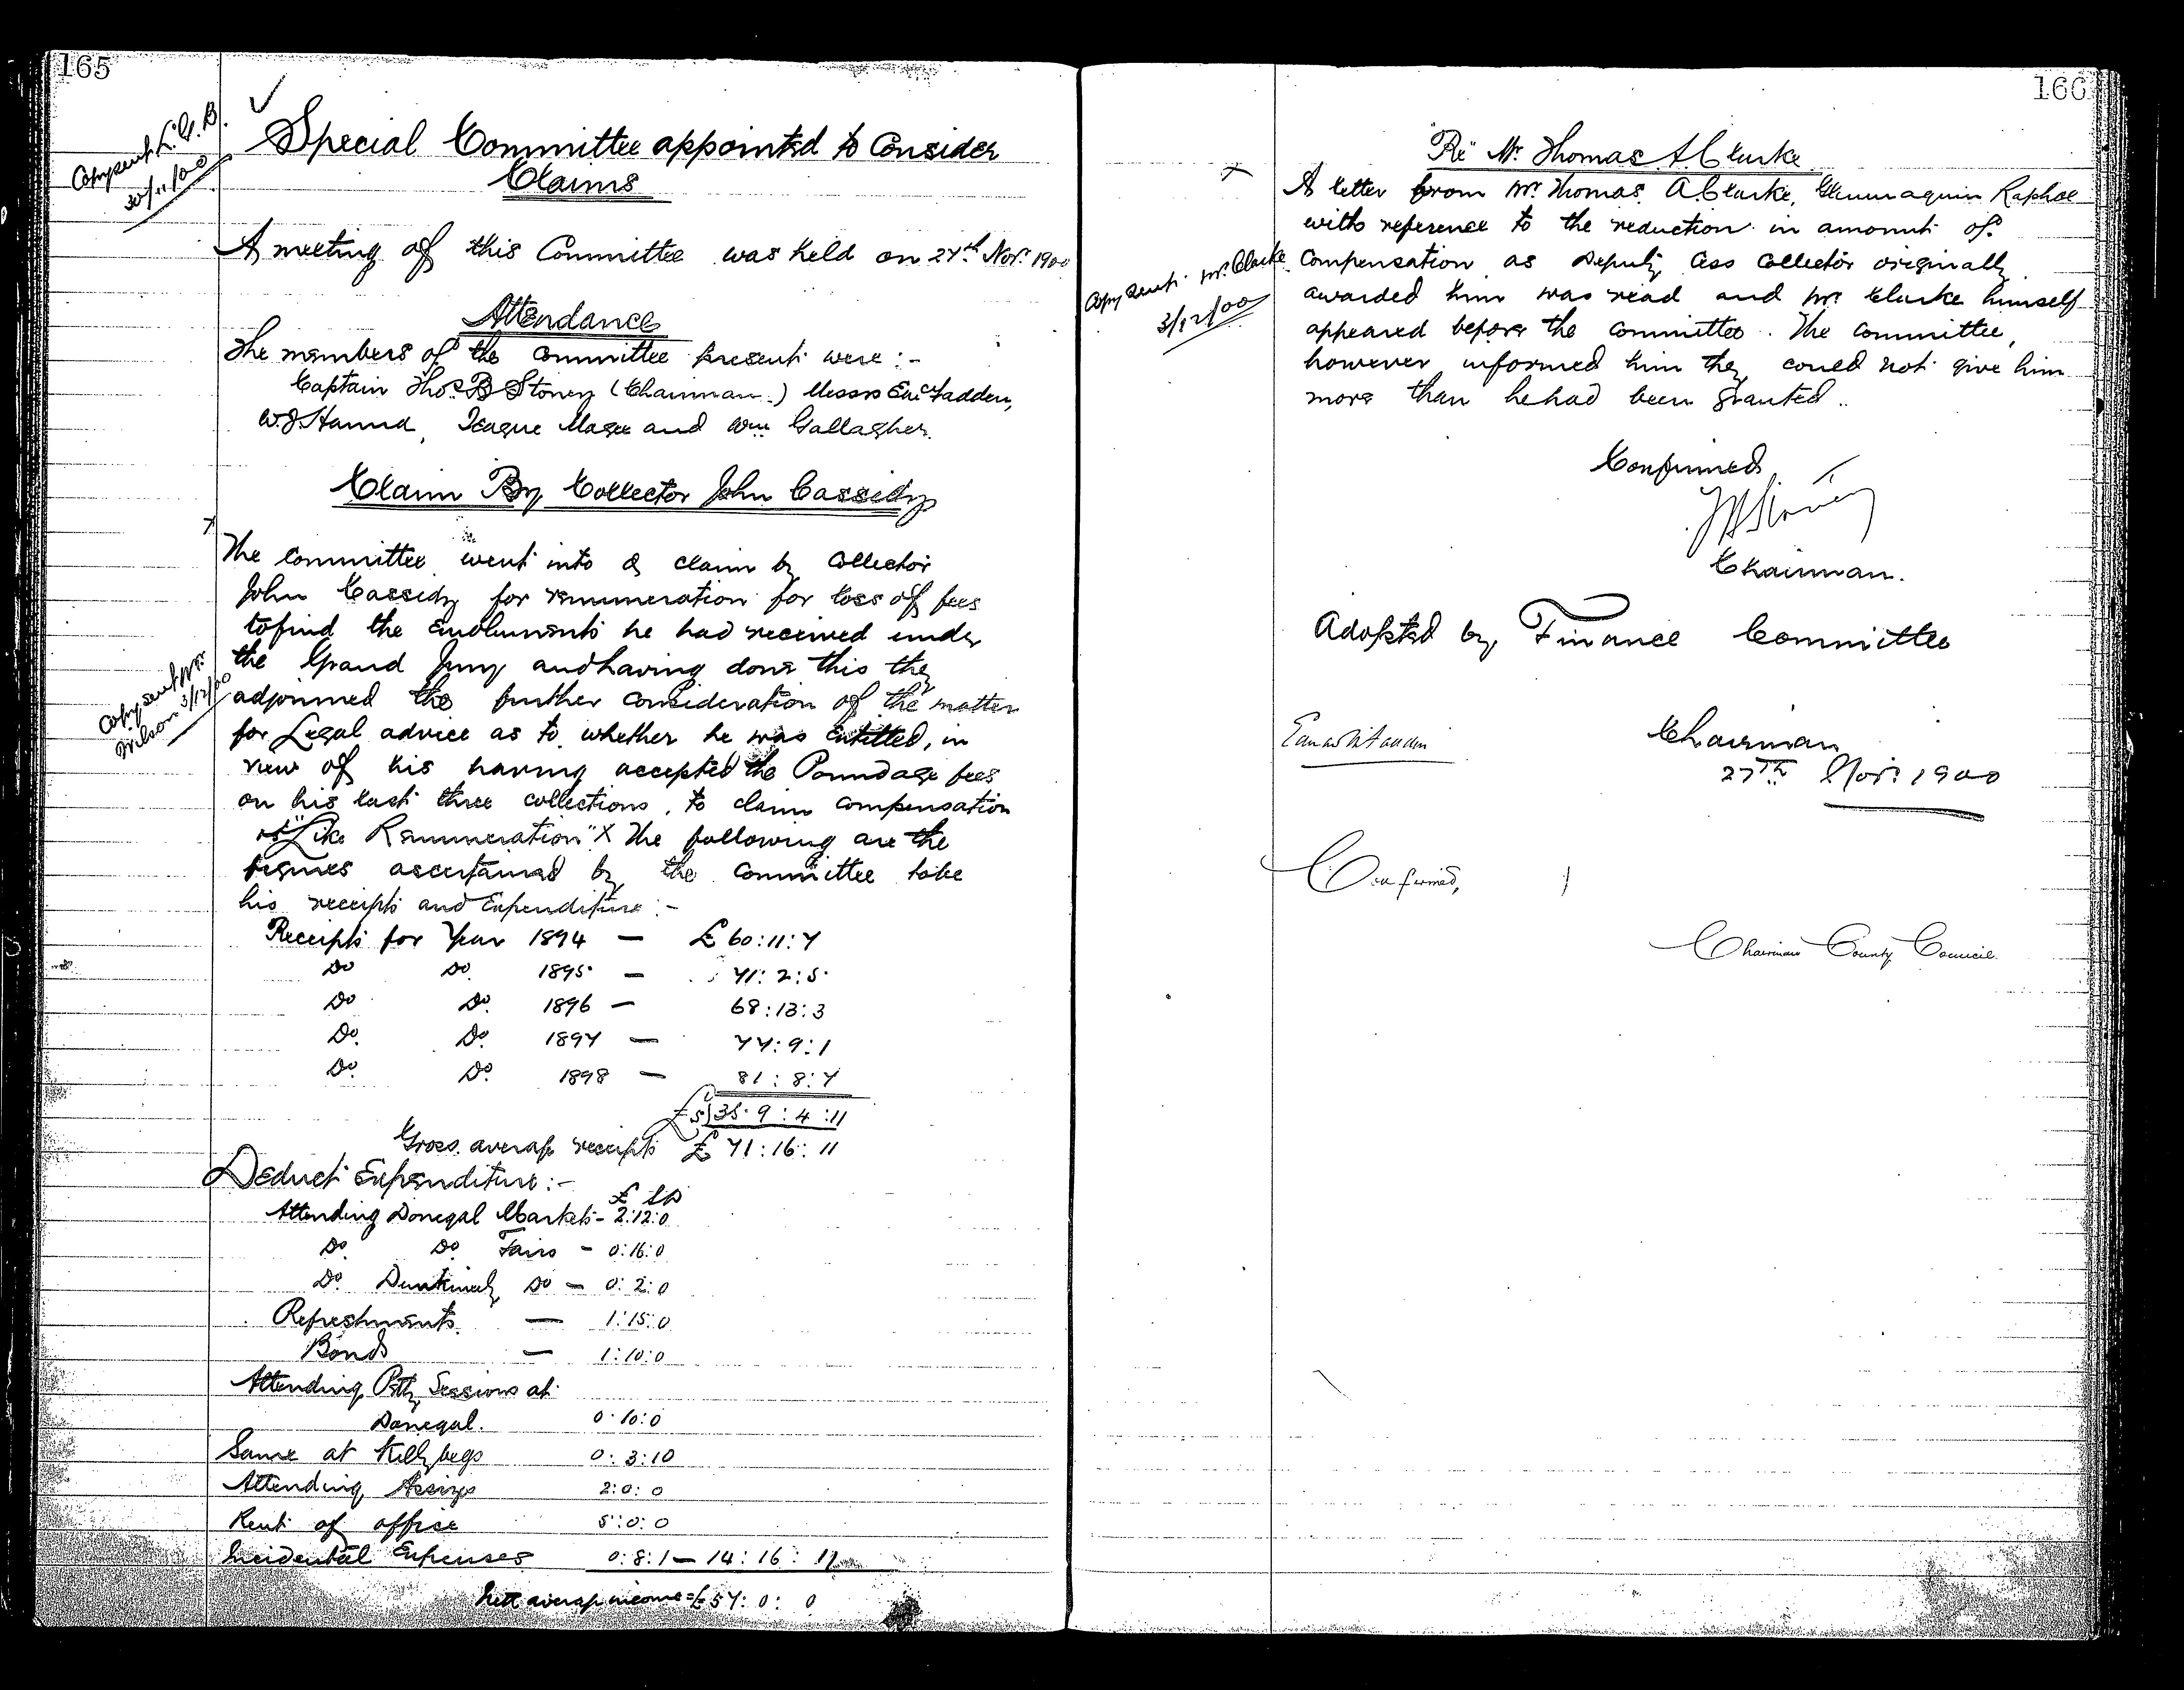 165
Copy sent L.G.B.
30/11/00
Special Committee appointed to Consider
Claims
A meeting of this Committee was held on 27th Nov. 1900
Attendance
The members of the Committee present were :-
Captain Thos. B Stoney (Chairman.) Messrs E McFadden,
W.J. Hanna, Teague Magee and Wm Gallagher.
Claim By Collector John Cassidy
The Committee went into a claim by Collector
John Cassidy for remuneration for loss of fees
to find the Emoluments he had received under
the Grand Jury and having done this they
adjourned the further consideration of the matter
Copy sent Mr.
Wilson 3/12/00
for Legal advice as to whether he was entitled, in
view of his having accepted the Poundage fees
on his last three collections, to claim compensation
or "Like Remuneration" X The following are the
figures ascertained by the Committee to be
his receipts and Expenditure :-
Receipts for Year 1894 — £60:11:7
Do Do 1895 — 71:2:5
Do Do 1896 — 68:13:3
Do. Do. 1897 — 77:9:1
Do. Do. 1898 — 81:8:7
£5)359:4:11
Gross average receipts £71:16:11
Deduct Expenditure :-
£ s D
Attending Donegal Markets - 2:12:0
Do Do Fairs - 0:16:0
Do Dunkineely Do — 0:2:0
Refreshments. — 1:15:0
Bonds — 1:10:0
Attending Petty Sessions at
Donegal. 0:10:0
Same at Killybegs 0:3:10
Attending Assizes 2:0:0
Rent of office 5:0:0
Incidental Expenses 0:8:1 — 14:16:11
Nett average income = £57:0:0
166
"Re" Mr. Thomas A Clarke
A letter from Mr. Thomas A Clarke, Raphoe
with reference to the reduction in amount of
Copy sent Mr. Clarke
3/12/00
Compensation as Deputy Cess Collector originally
awarded him was read and Mr Clarke himself
appeared before the Committee. The Committee,
however informed him they could not give him
more than he had been granted.
Confirmed,
TBStoney
Chairman.
Adopted by Finance Committee
Chairman
27th Nov. 1900
Confirmed,
Chairman County Council.